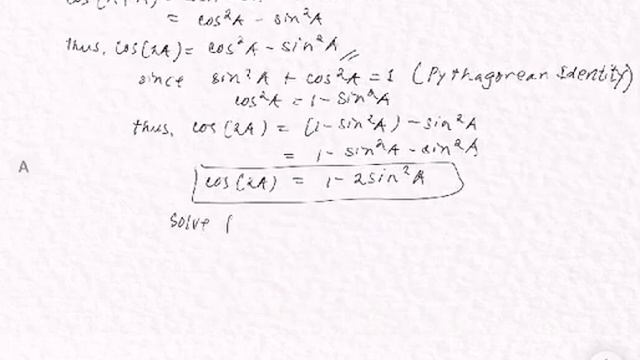 = cos²A - sin²A
thus, cos(2A) = cos²A - sin²A
since sin²A + cos²A = 1 (Pythagorean Identity)
cos²A = 1 - sin²A
thus, cos(2A) = (1 - sin²A) - sin²A
= 1 - sin²A - sin²A
cos(2A) = 1 - 2sin²A
A
solve